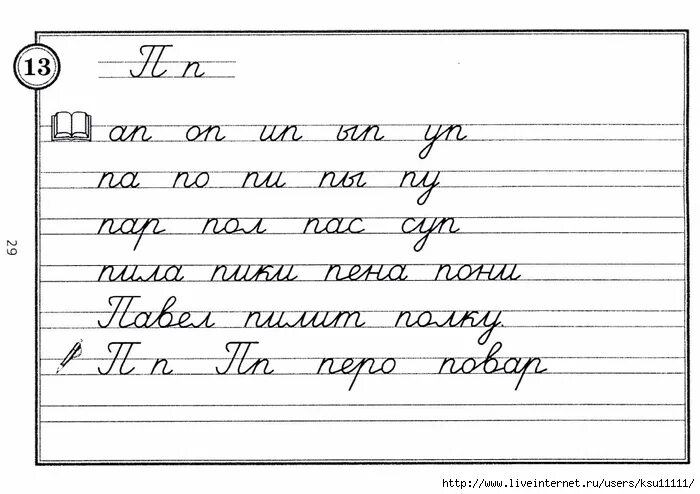 13 П п
ап оп ип ып уп
па по пи пы пу
пар пол пас суп
пила пики пена пони
Павел пилит полку.
П п Пп перо повар
29
http://www.liveinternet.ru/users/ksu11111/